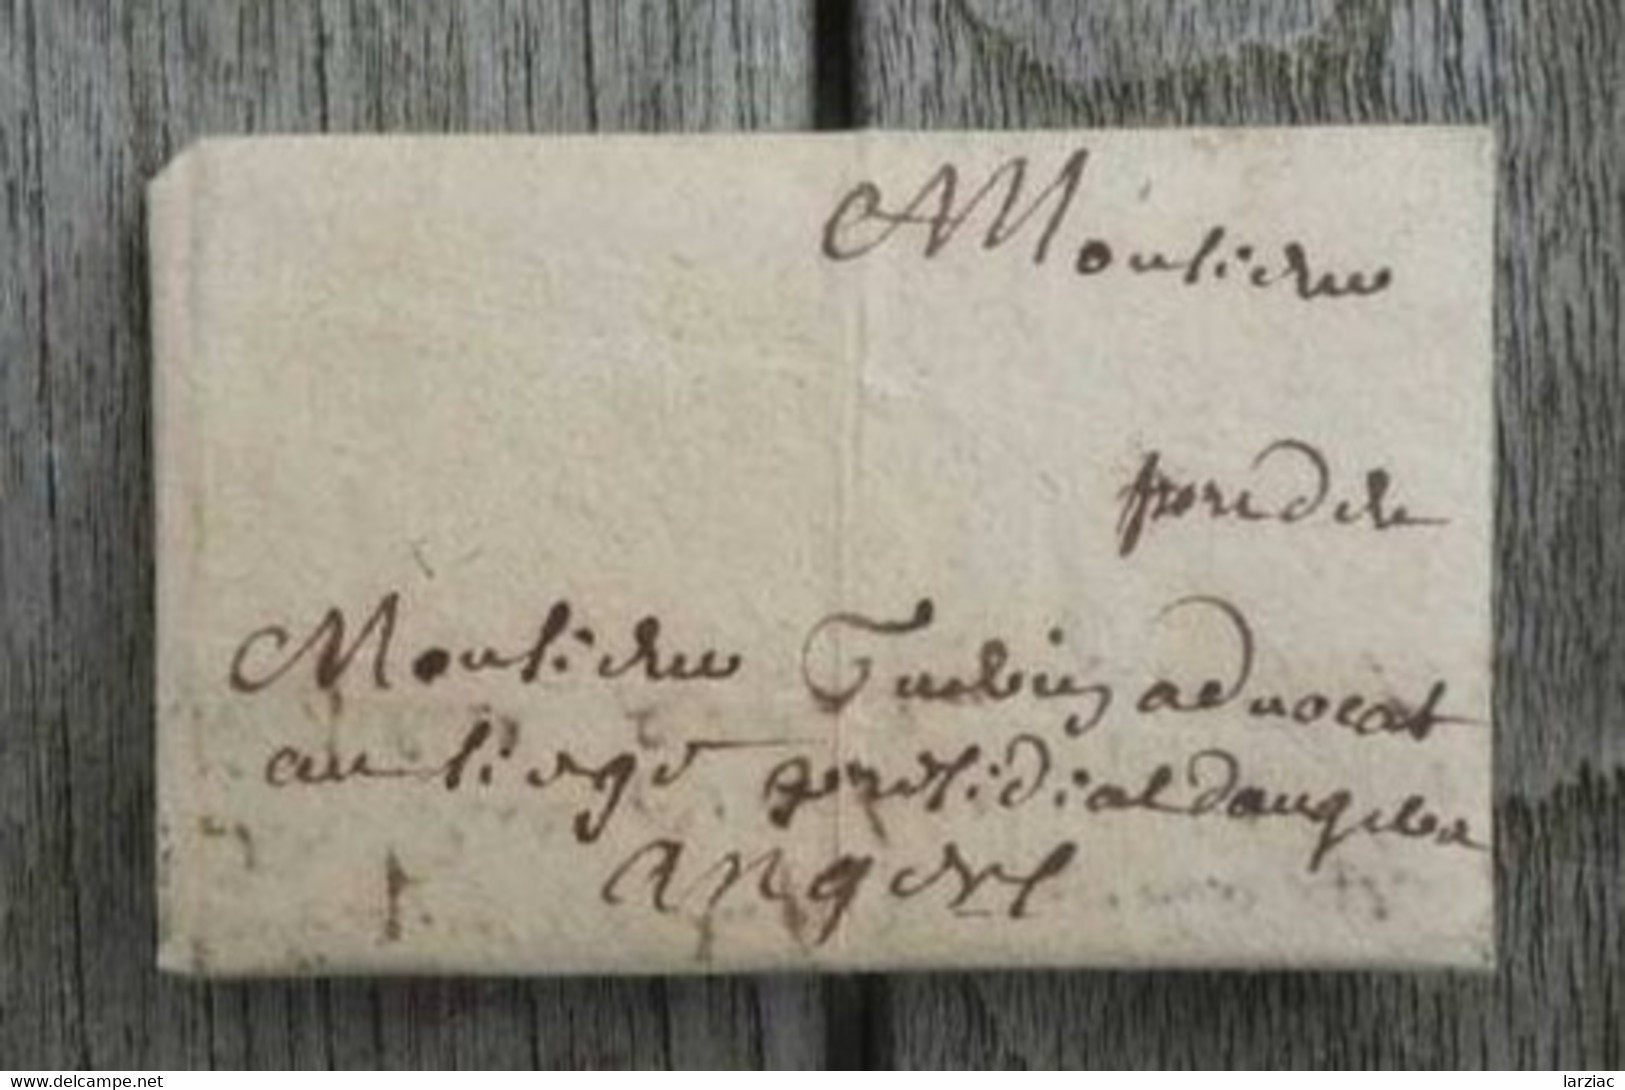 Monsieur
port de
Monsieur Turbin advocat
au siege presidial dangers
Angers
www.delcampe.net
larziac